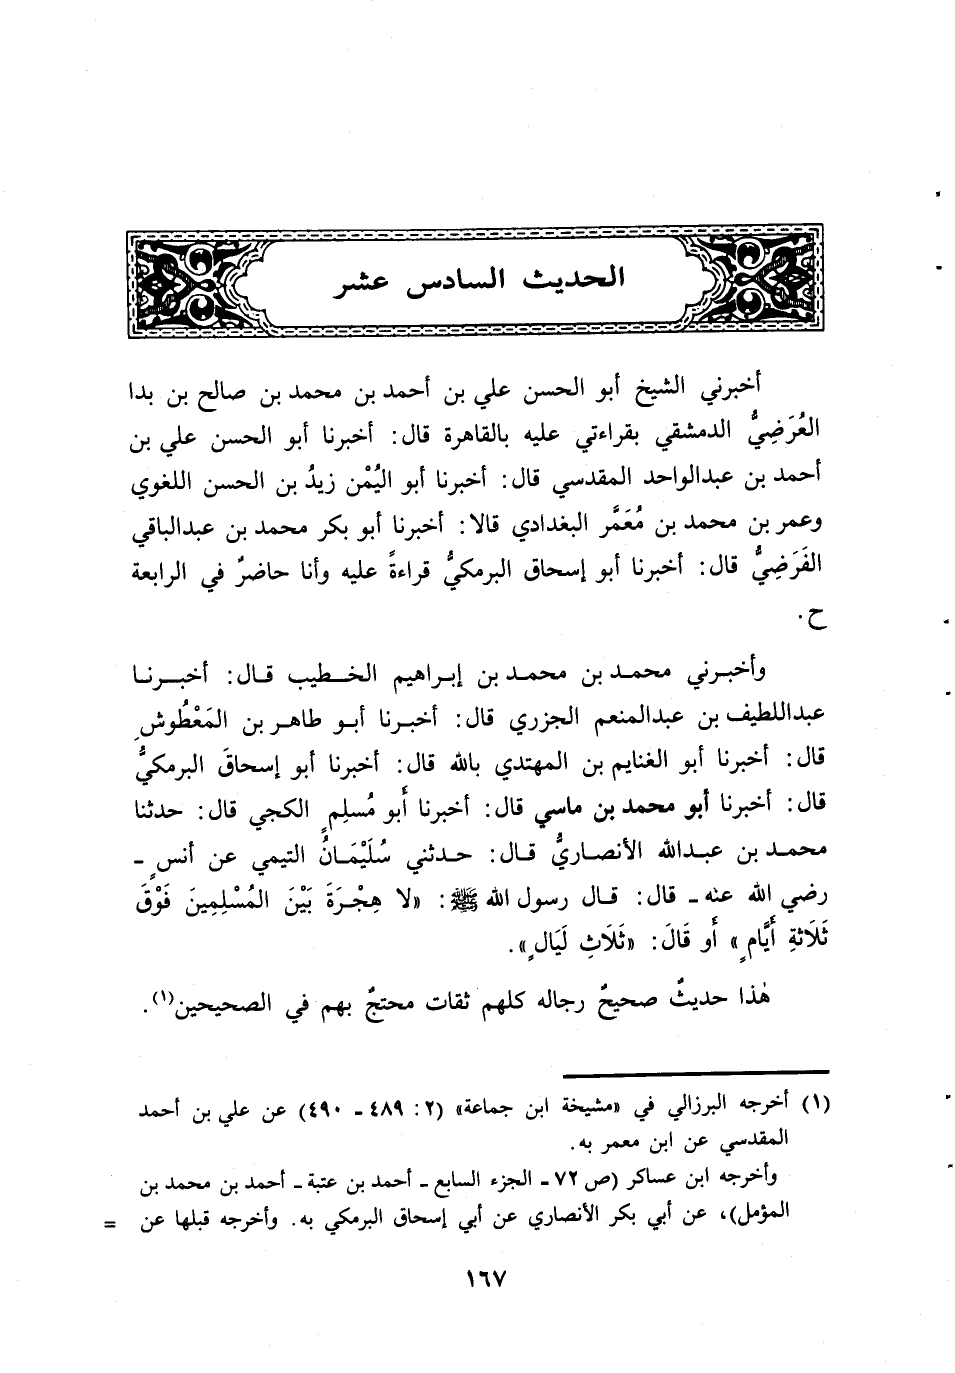 الحديث السادس عشر
أخبرني الشيخ أبو الحسن علي بن أحمد بن محمد بن صالح بن بدا
العُرَضِيُّ الدمشقي بقراءتي عليه بالقاهرة قال: أخبرنا أبو الحسن علي بن
أحمد بن عبدالواحد المقدسي قال: أخبرنا أبو اليُمْن زيدُ بن الحسن اللغوي
وعمر بن محمد بن مُعَمَّر البغدادي قالا: أخبرنا أبو بكر محمد بن عبدالباقي
الفَرَضِيُّ قال: أخبرنا أبو إسحاق البرمكيُّ قراءةً عليه وأنا حاضرٌ في الرابعة
ح.
وأخبرني محمد بن محمد بن إبراهيم الخطيب قال: أخبرنا
عبداللطيف بن عبدالمنعم الجزري قال: أخبرنا أبو طاهر بن المَعْطُوشِ
قال: أخبرنا أبو الغنايم بن المهتدي بالله قال: أخبرنا أبو إسحاقَ البرمكيُّ
قال: أخبرنا أبو محمد بن ماسي قال: أخبرنا أَبو مُسلِمٍ الكجي قال: حدثنا
محمد بن عبدالله الأنصاريُّ قال: حدثني سُلَيْمَانُ التيمي عن أنسٍ ـ
رضي الله عنه ـ قال: قال رسول الله ﷺ: «لا هِجْرَةَ بَيْنَ المُسْلِمِينَ فَوْقَ
ثَلَاثةِ أَيَّامٍ» أَو قَالَ: «ثَلَاثِ لَيَالٍ».
هٰذا حديثٌ صحيحٌ رجاله كلهم ثقات محتجٌ بهم في الصحيحين(١).
(١) أخرجه البرزالي في «مشيخة ابن جماعة» (٢: ٤٨٩ ـ ٤٩٠) عن علي بن أحمد
المقدسي عن ابن معمر به.
وأخرجه ابن عساكر (ص ٧٢ ـ الجزء السابع ـ أحمد بن عتبة ـ أحمد بن محمد بن
المؤمل)، عن أبي بكر الأنصاري عن أبي إسحاق البرمكي به. وأخرجه قبلها عن =
١٦٧